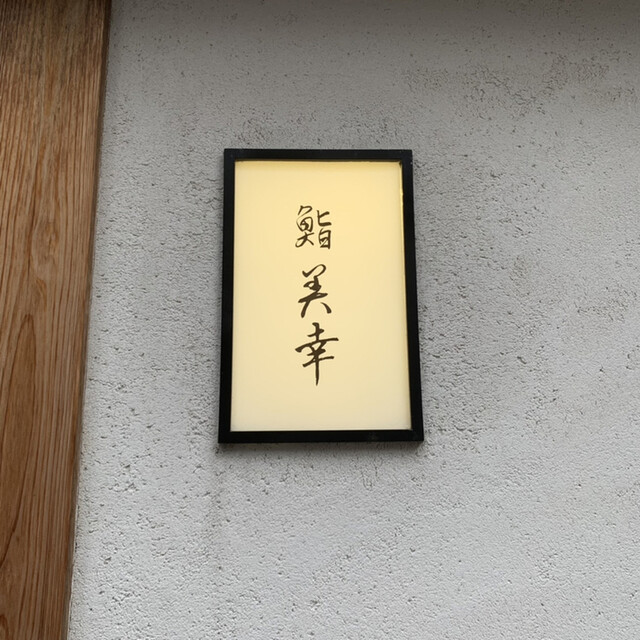 鮨 美幸